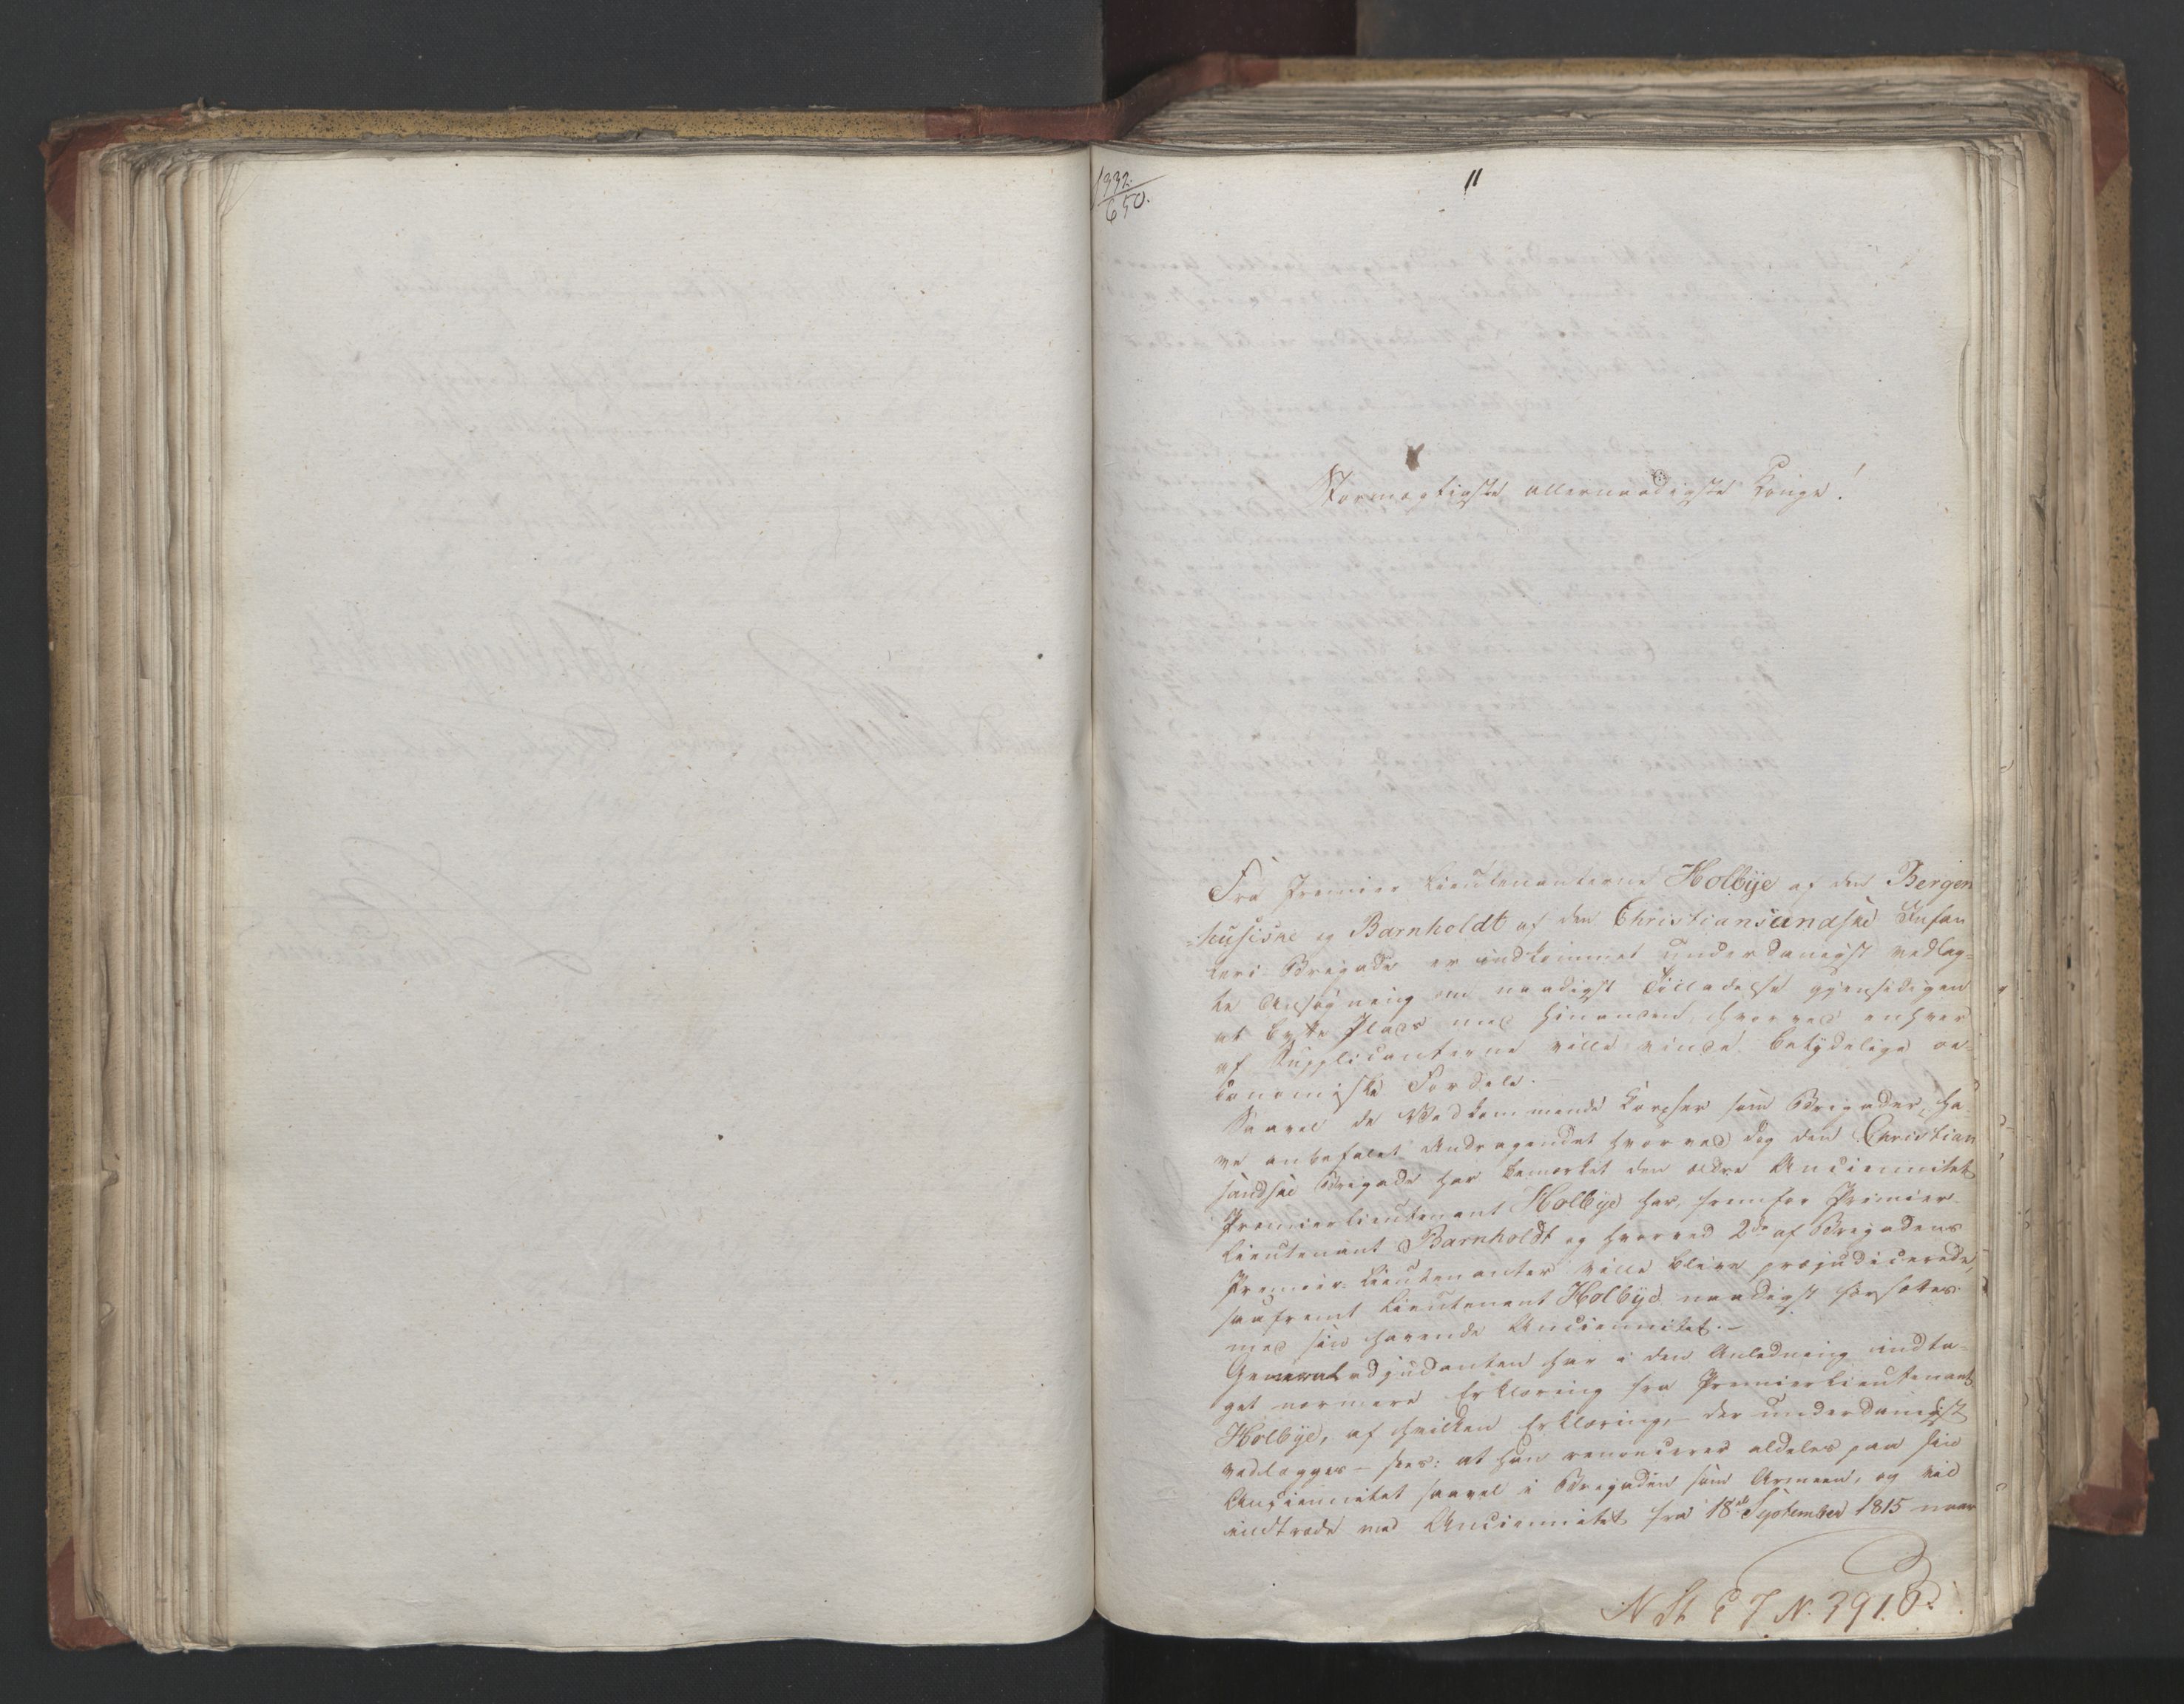 1332.
650.
11
Stormægtigste allernaadigste Konge!
Fra Premier Lieutenanterne Holbÿe af den Bergen
=husiske og Barnholdt af den Christiansandske Infan
teri Brigade er indkommet underdanigst vedlag=
te Ansøgning om naadigst Tilladelse gjensidigen
at bytte Plads med hinanden, hvorved enhver
af Supplicanterne ville vinde betydelige oe=
conomiske Fordele.
Saavel de Vedkommende Corpser som Brigader, ha
ve anbefalet Andragendet hvorved dog den Christian
sandske Brigade har bemærket den ældre Anciennitet
Premierlieutenant Holbye har, fremfor Premier-
Lieutenant Barnholdt og hvorved 2de af Brigadens
Premier-Lieutenanter ville blive præjudicerede,
saafremt Lieutenant Holbÿe naadigst forsættes
med sin havende Anciennitet.-
Generaladjudanten har i den Anledning indta=
get nærmere Erklæring fra Premierlieutenant
Holbÿe, af hvilken Erklæring,- der underdanigst
vedlægges- sees: at han renoncerer aldeles paa sin
Anciennitet saavel i Brigaden som Armeen, og vil
indtræde med Anciennitet fra 18de September 1815 naar
N St E J N. 391.